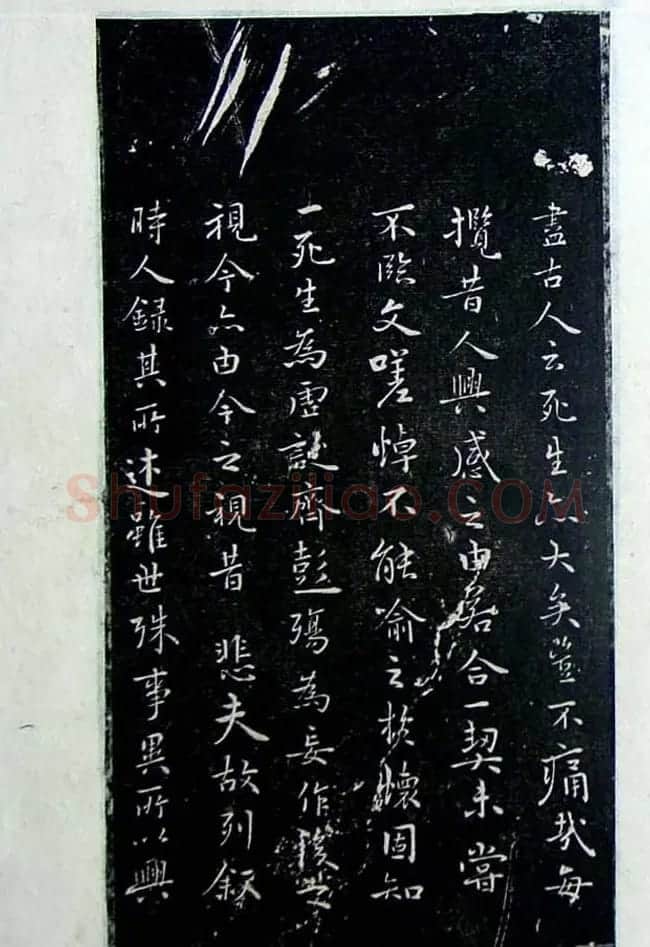 盡古人云死生亦大矣豈不痛哉每
攬昔人興感之由若合一契未嘗
不臨文嗟悼不能喻之於懷固知
一死生為虛誕齊彭殤為妄作後
視今亦由今之視昔悲夫故列敘
時人錄其所述雖世殊事異所以興
Shufaziliao.COM